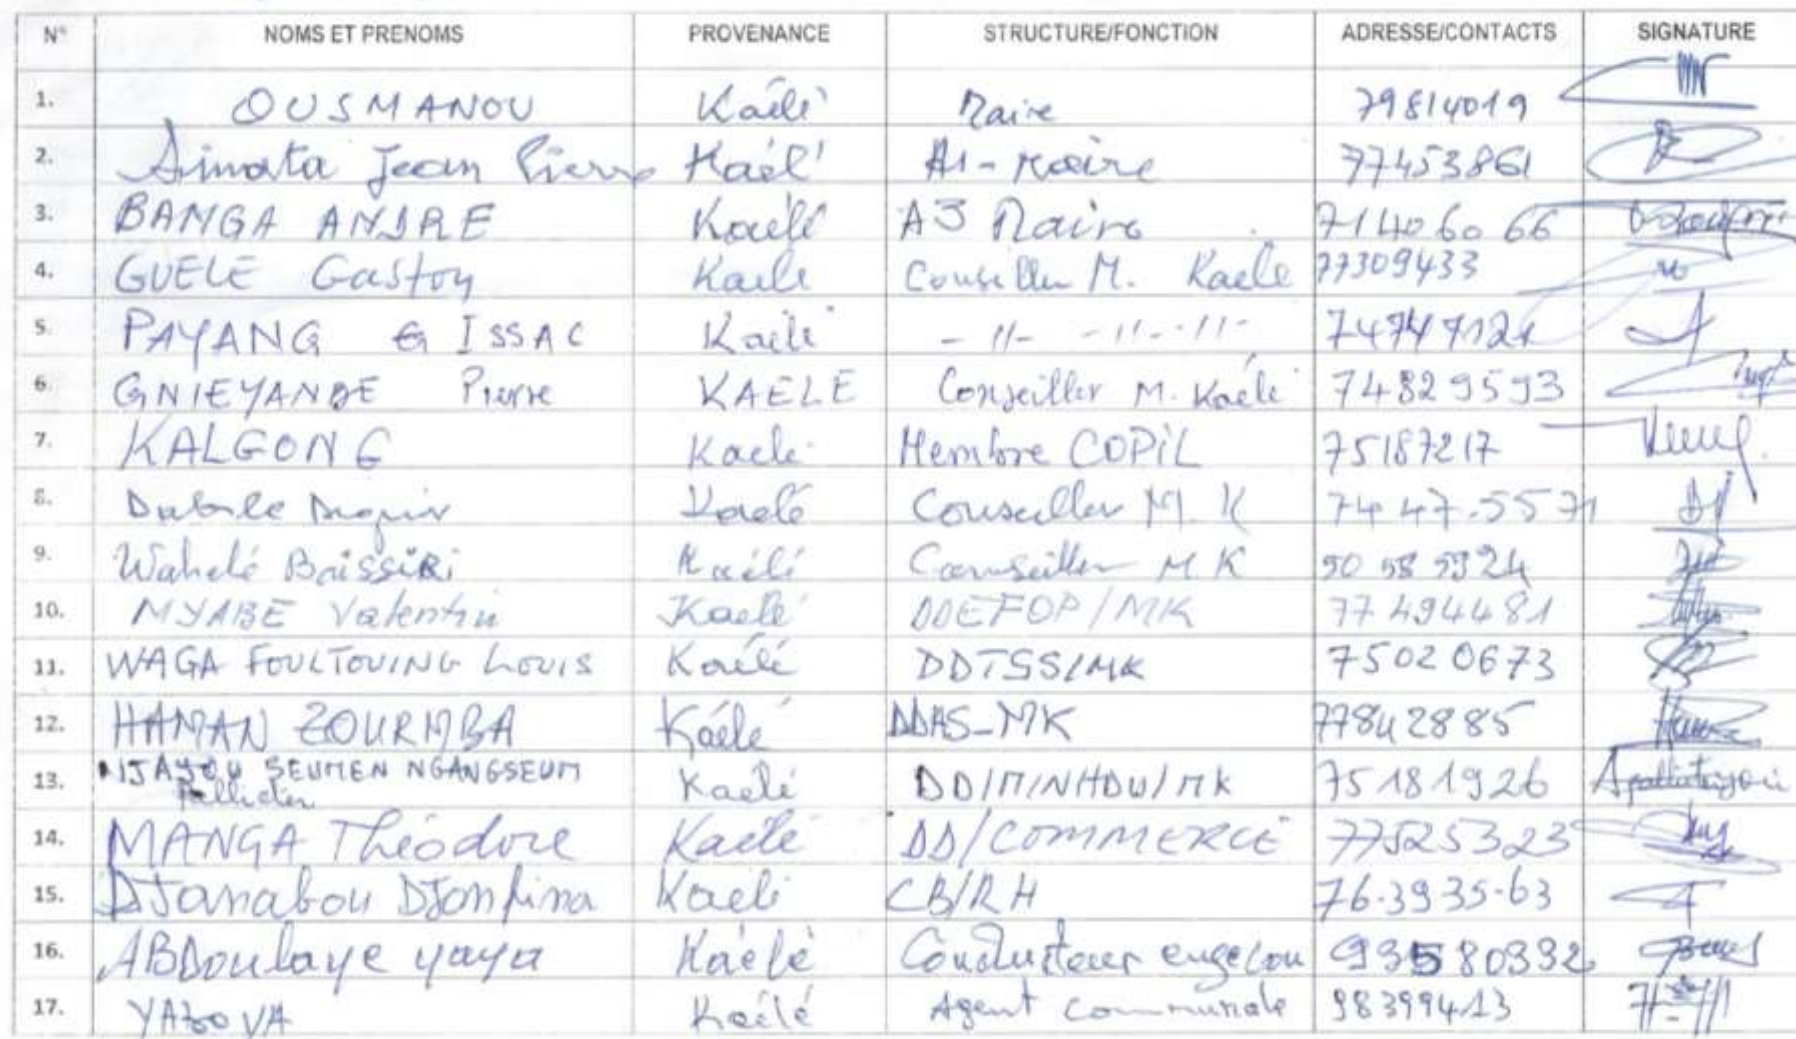 N° NOMS ET PRENOMS PROVENANCE STRUCTURE/FONCTION ADRESSE/CONTACTS SIGNATURE
1. OUSMANOU Kaélé Maire 79814019
2. Jean Pierre Kaélé A1-Maire 77453861
3. BANGA ANDRE Kaélé A3 Maire 71406066
4. GUELE Gaston Kaele Conseiller M. Kaele 77309433
5. PAYANG G ISSAC Kaélé -11- -11- -11-
6. GNIEYANDE Pierre KAELE Conseiller M. Kaélé 74829593
7. KALGONG Kaele Membre COPIL 75187217
8. Kaelé Conseiller M. K 74 47.55 71
9. Wahelé Baissiri Kaélé Conseiller M.K
10. MYABE Valentin Kaelé DDEFOP/MK 77494481
11. WAGA FOULTOUING LOUIS Kaélé DDTSS/MK 75020673
12. HAMAN ZOURMBA Kaélé DDAS-MK 77842885
13. NJAYOU SEUMEN NGANGSEUM Kaelé DD/MINHDU/MK 75181926
14. MANGA Théodore Kaélé DD/COMMERCE 77525323
15. DJanabou Kaelé CB/RH 76.3935-63
16. ABDoulaye yaya Kaélé Conducteur 93580332
17. Kaélé Agent communale 98399413